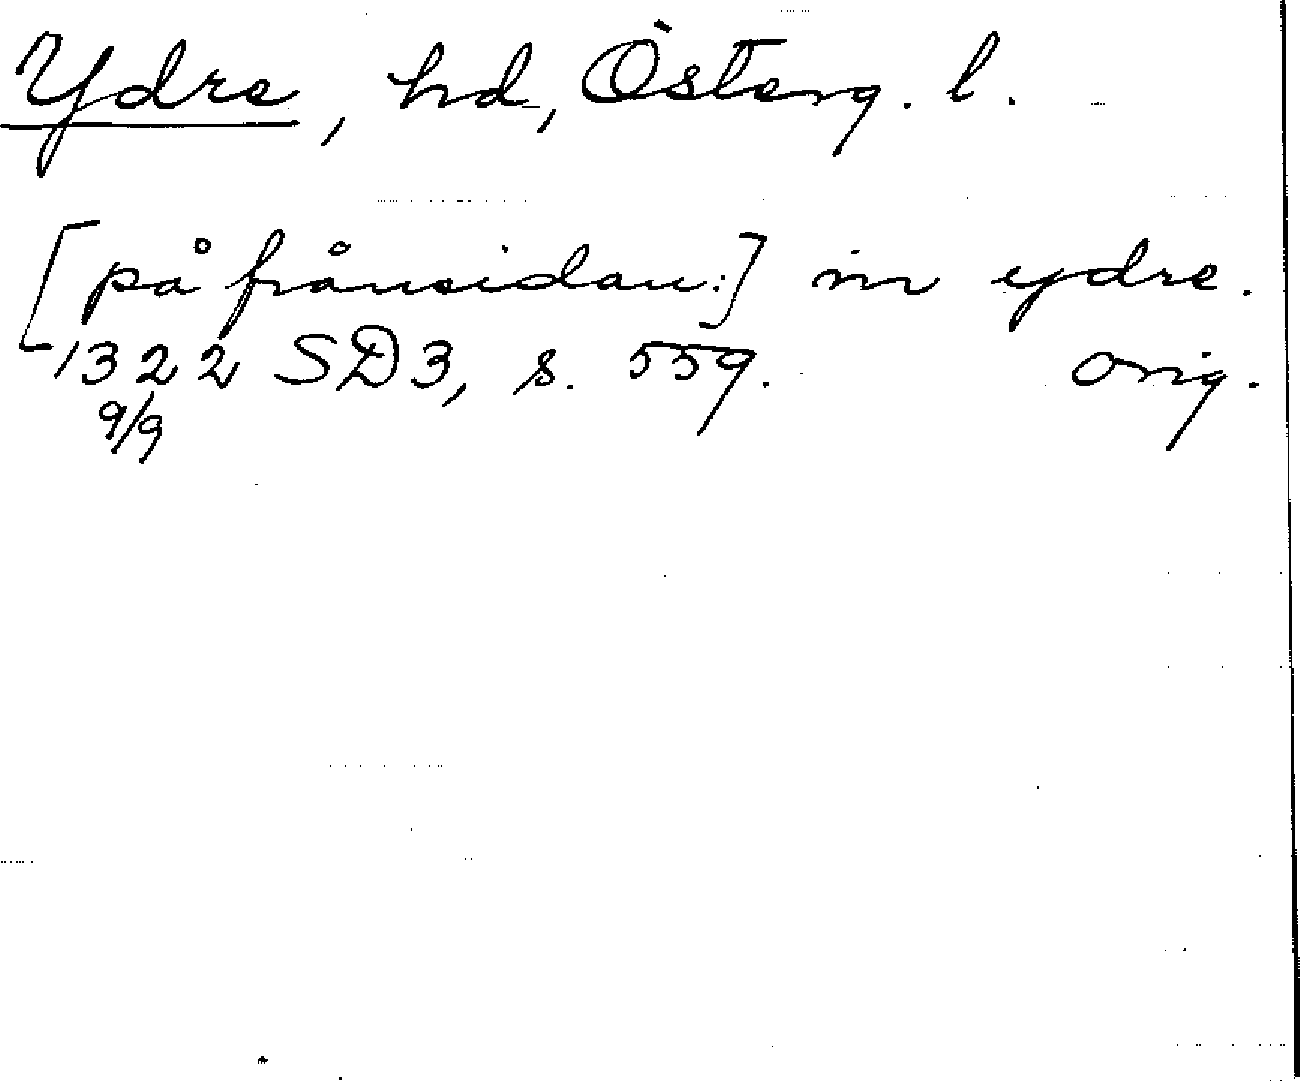 Ydre, hd, Österg. l.
[på frånsidan:] in ydre.
1322 SD3, s. 559. Orig.
9/9